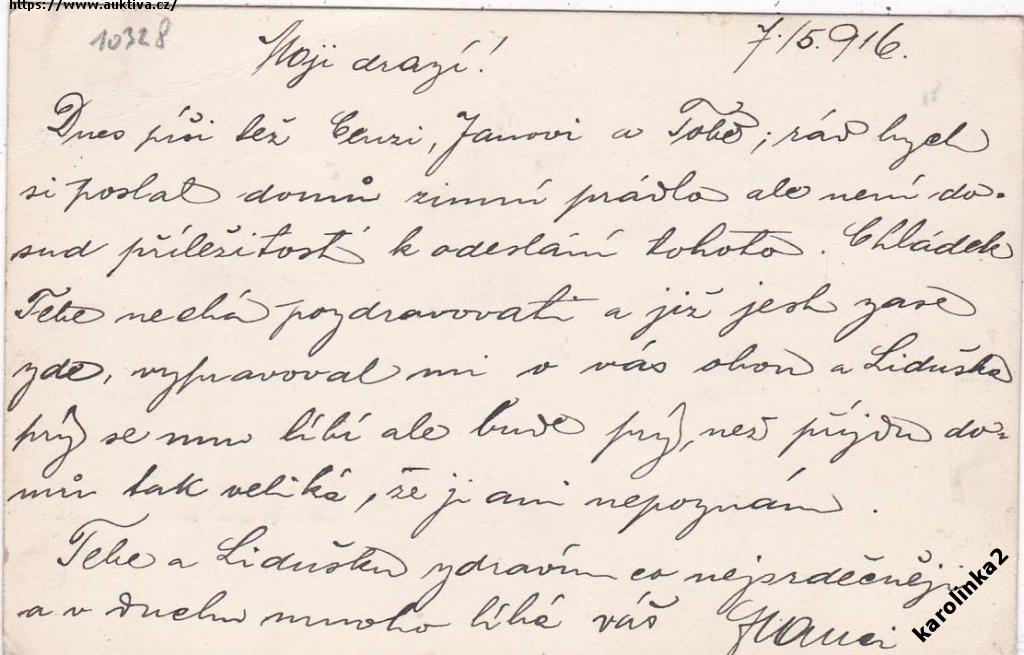 https://www.auktiva.cz/
10328
Moji drazí! 7./5.916.
Dnes píši též Cenzi, Janovi a Tobě; rád bych
si poslal domů zimní prádlo ale není do-
sud příležitost k odeslání tohoto. Chládek
Tebe nechá pozdravovati a již jest zase
zde, vypravoval mi o vás obou a Liduška
prý se mu líbí ale bude prý, než přijdu do-
mů tak veliká, že ji ani nepoznám.
Tebe a Lidušku zdravím co nejsrdečněji
a v duchu mnoho líbá váš
karolinka2